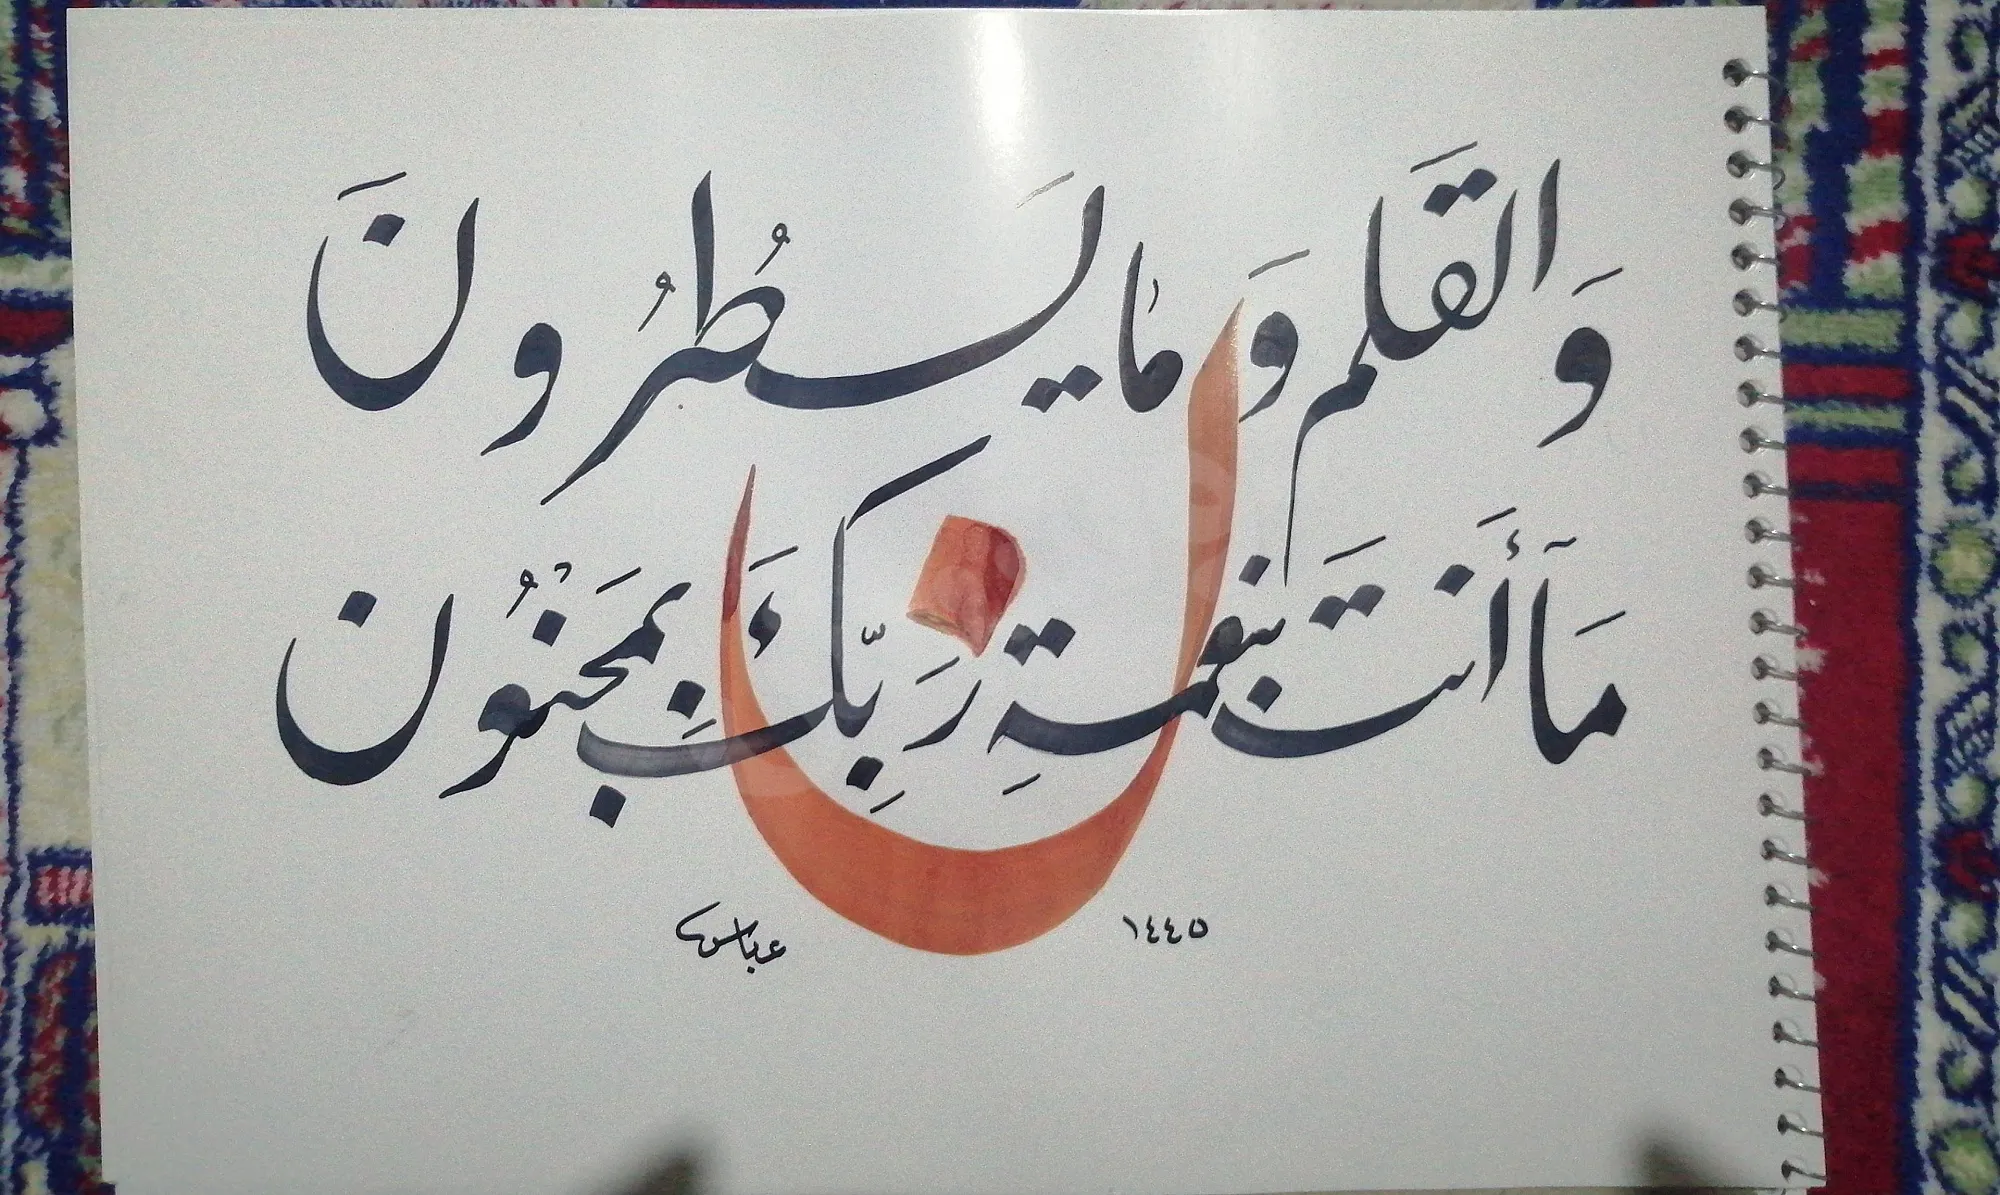 ن
وَالْقَلَمِ وَمَا يَسْطُرُونَ
مَا أَنتَ بِنِعْمَةِ رَبِّكَ بِمَجْنُونٍ
١٤٤٥
عباس